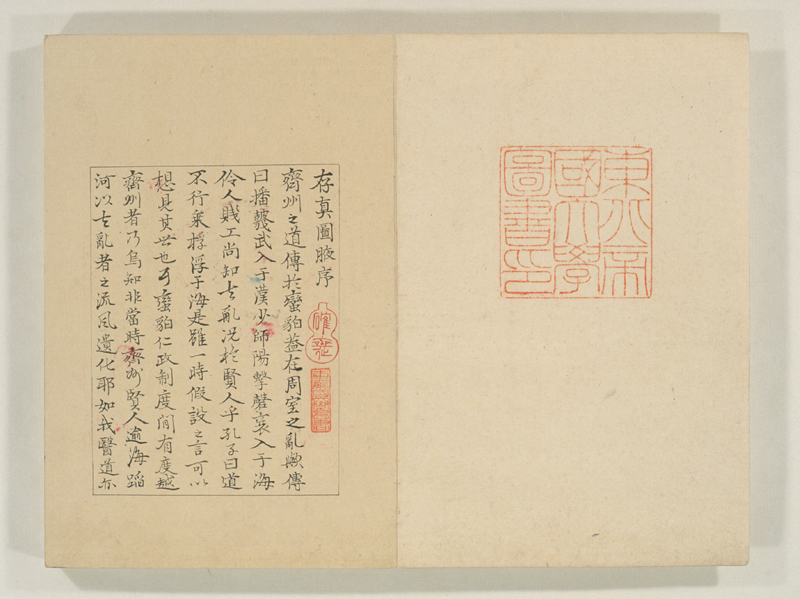 東北帝
國大學
圖書印
存真圖腋序
齊州之道傳於蠻貊蓋在周室之亂歟傳
曰播鼗武入于漢少師陽擊磬襄入于海
伶人賤工尚知去亂況於賢人乎孔子曰道
不行乘桴浮于海是雖一時假設之言可以
想見其世也蠻貊仁政制度間有度越
齊州者乃烏知非當時齊州賢人逾海蹈
河以去亂者之流風遺化耶如我醫道亦